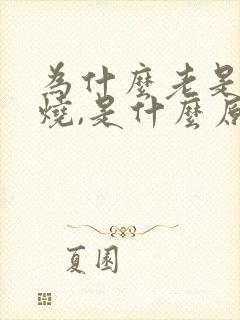 為什麼老是
燒,是什麼原
夏園